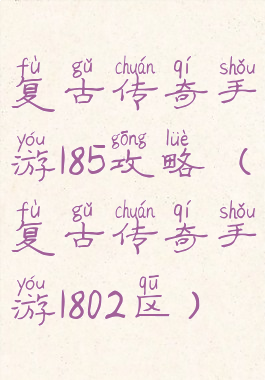 fù gǔ chuán qí shǒu
复古传奇手
yóu gōng lüè
游185攻略（
fù gǔ chuán qí shǒu
复古传奇手
yóu qū
游1802区）